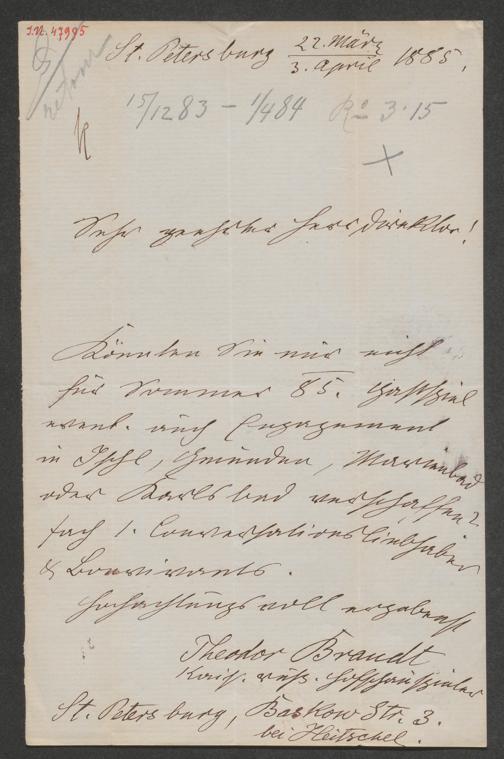 I.N. 47985
retour
St. Petersburg 22. März
3. April 1885.
15/12 83 – 1/4 84 Ro 3.15
Sehr geehrter Herr Direktor!
Könnten Sie mir nicht
für Sommer 85. Gastspiel
event. auch Engagement
in Ischl, Gmunden, Marienbad
oder Karlsbad verschaffen?
Fach 1. Conversationsliebhaber
& Bonvivants.
Hochachtungsvoll ergebenst
Theodor Brandt
Kais. russ. Hofschauspieler
St. Petersburg, Baskow Str. 3.
bei Heitschel.